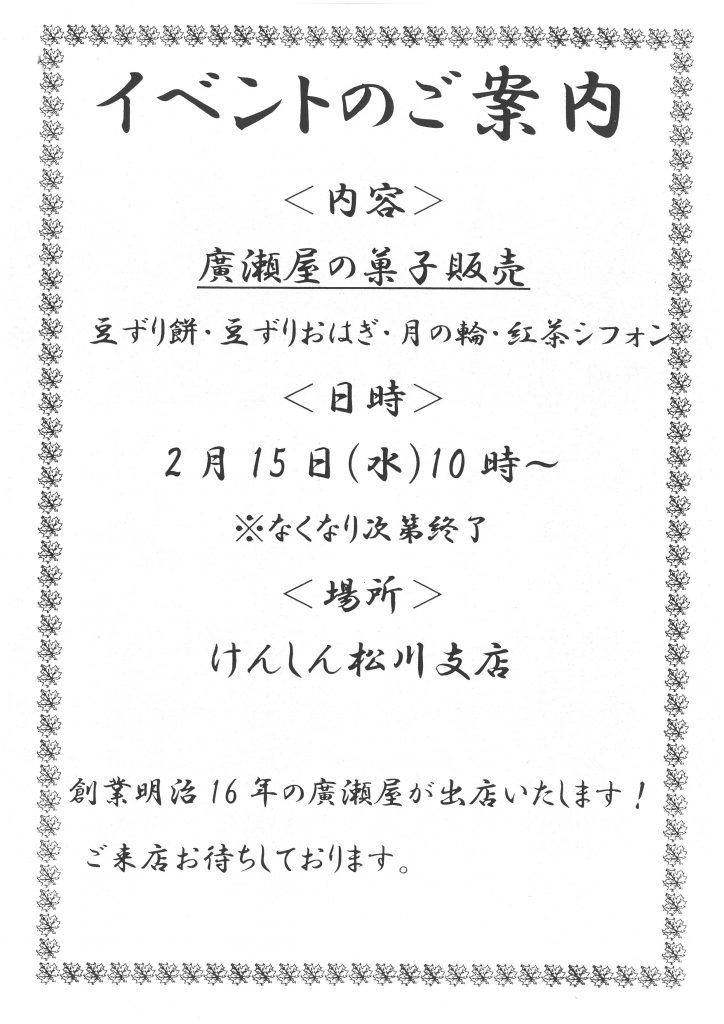 イベントのご案内
＜内容＞
廣瀬屋の菓子販売
豆ずり餅・豆ずりおはぎ・月の輪・紅茶シフォン
＜日時＞
2月15日(水)10時～
※なくなり次第終了
＜場所＞
けんしん松川支店
創業明治16年の廣瀬屋が出店いたします！
ご来店お待ちしております。